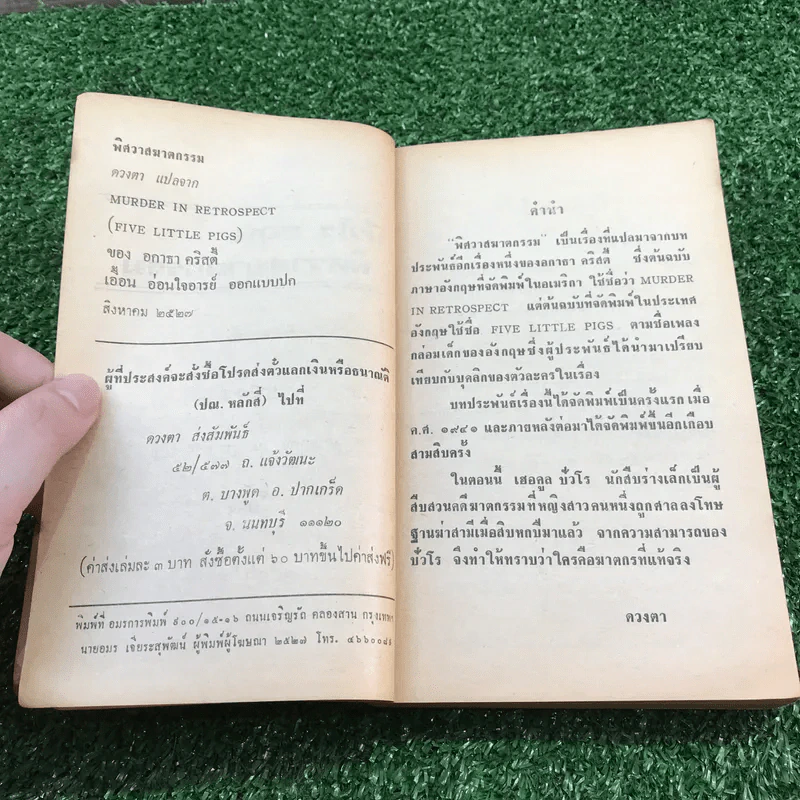 พิศวาสฆาตกรรม
ดวงตา แปลจาก
MURDER IN RETROSPECT
(FIVE LITTLE PIGS)
ของ อกาธา คริสตี้
เอื้อน อ่อนใจอารย์ ออกแบบปก
สิงหาคม ๒๕๒๗
ผู้ที่ประสงค์จะสั่งซื้อโปรดส่งตั๋วแลกเงินหรือธนาณัติ
(ปณ. หลักสี่) ไปที่
ดวงตา ส่งสัมพันธ์
๕๒/๕๗๗ ถ. แจ้งวัฒนะ
ต. บางพูด อ. ปากเกร็ด
จ. นนทบุรี ๑๑๑๒๐
(ค่าส่งเล่มละ ๓ บาท สั่งซื้อตั้งแต่ ๖๐ บาทขึ้นไปค่าส่งฟรี)
พิมพ์ที่ อมรการพิมพ์ ๙๐๐/๑๕-๑๖ ถนนเจริญรัถ คลองสาน กรุงเทพฯ
นายอมร เจียระสุพัฒน์ ผู้พิมพ์ผู้โฆษณา ๒๕๒๗ โทร.
คำนำ
"พิศวาสฆาตกรรม" เป็นเรื่องที่แปลมาจากบท
ประพันธ์อีกเรื่องหนึ่งของอกาธา คริสตี้ ซึ่งต้นฉบับ
ภาษาอังกฤษที่จัดพิมพ์ในอเมริกา ใช้ชื่อว่า MURDER
IN RETROSPECT แต่ต้นฉบับที่จัดพิมพ์ในประเทศ
อังกฤษใช้ชื่อ FIVE LITTLE PIGS ตามชื่อเพลง
กล่อมเด็กของอังกฤษซึ่งผู้ประพันธ์ได้นำมาเปรียบ
เทียบกับบุคลิกของตัวละครในเรื่อง
บทประพันธ์เรื่องนี้ได้จัดพิมพ์เป็นครั้งแรก เมื่อ
ค.ศ. ๑๙๔๑ และภายหลังต่อมาได้จัดพิมพ์ขึ้นอีกเกือบ
สามสิบครั้ง
ในตอนนี้ เฮอคูล ปัวโร นักสืบร่างเล็กเป็นผู้
สืบสวนคดีฆาตกรรมที่หญิงสาวคนหนึ่งถูกศาลลงโทษ
ฐานฆ่าสามีเมื่อสิบหกปีมาแล้ว จากความสามารถของ
ปัวโร จึงทำให้ทราบว่าใครคือฆาตกรที่แท้จริง
ดวงตา